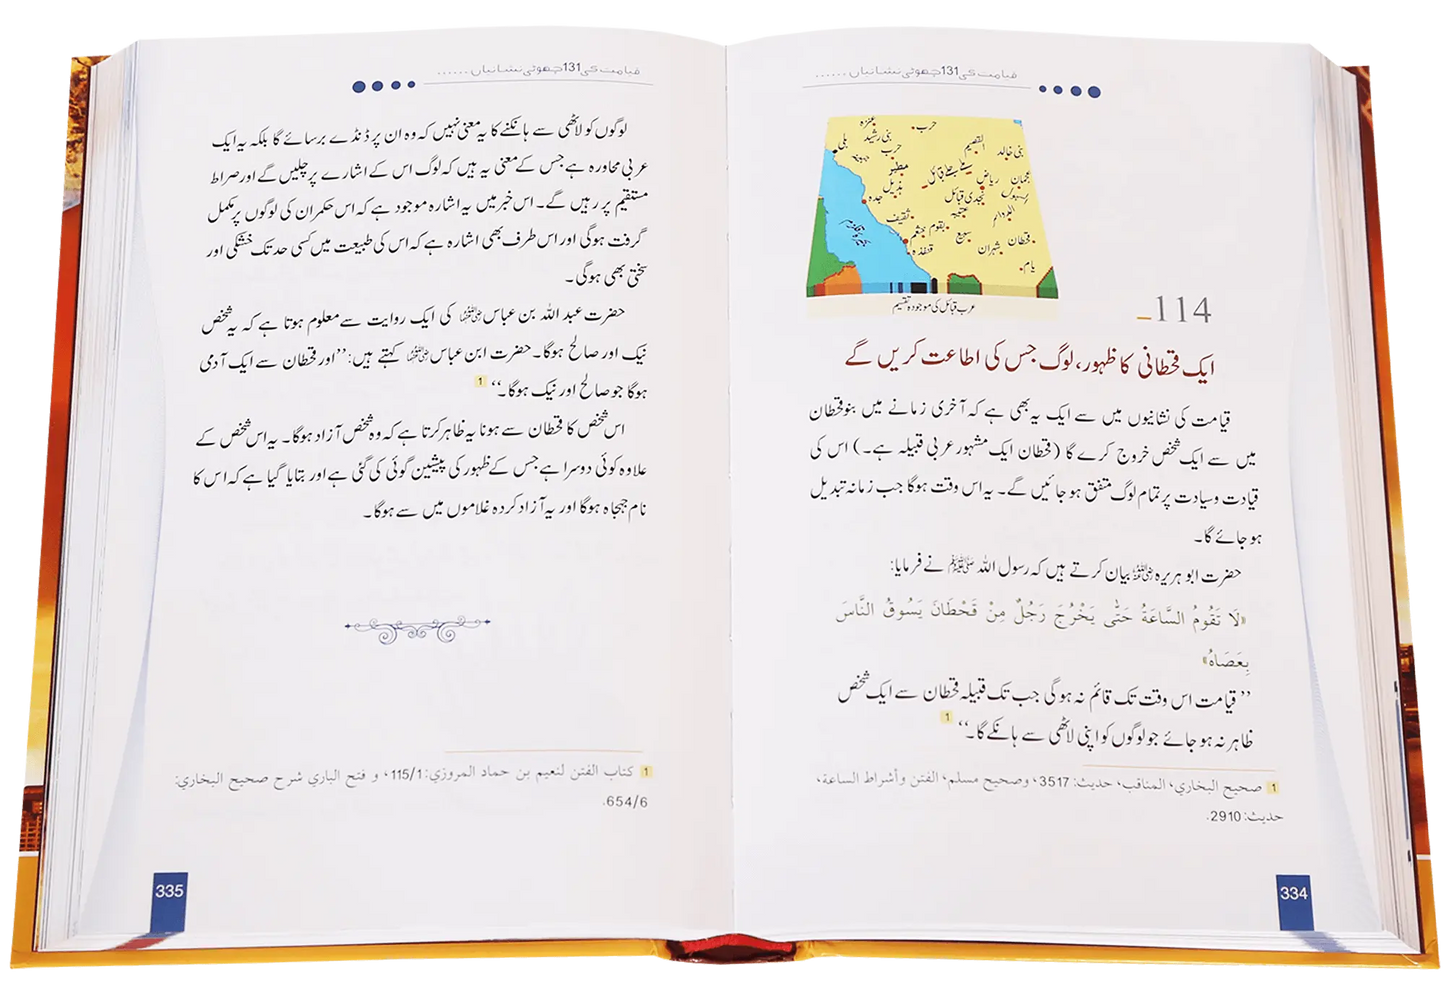 قیامت کی 131 چھوٹی نشانیاں ......
عنزہ
حرب
بنی رشید
بلی
حرب
القصیم
بنی خالد
جہینہ
مطیر
ہذیل
ریاض
عجمان
جدہ
نجدی قبائل
ثقیف
عتیبہ
الدواسر
بقوم
سبیع
قحطان
شہران
قنفذہ
یام
عرب قبائل کی موجودہ تقسیم
114
ایک قحطانی کا ظہور، لوگ جس کی اطاعت کریں گے
قیامت کی نشانیوں میں سے ایک یہ بھی ہے کہ آخری زمانے میں بنو قحطان
میں سے ایک شخص خروج کرے گا (قحطان ایک مشہور عربی قبیلہ ہے۔) اس کی
قیادت و سیادت پر تمام لوگ متفق ہو جائیں گے۔ یہ اس وقت ہوگا جب زمانہ تبدیل
ہو جائے گا۔
حضرت ابو ہریرہ رضی اللہ عنہ بیان کرتے ہیں کہ رسول اللہ ﷺ نے فرمایا:
«لَا تَقُومُ السَّاعَةُ حَتَّى يَخْرُجَ رَجُلٌ مِنْ قَحْطَانَ يَسُوقُ النَّاسَ
بِعَصَاهُ»
’’قیامت اس وقت تک قائم نہ ہو گی جب تک قبیلہ قحطان سے ایک شخص
ظاہر نہ ہو جائے جو لوگوں کو اپنی لاٹھی سے ہانکے گا۔‘‘ 1
1 صحيح البخاري، المناقب، حديث: 3517، وصحيح مسلم، الفتن وأشراط الساعة،
حديث: 2910.
334
قیامت کی 131 چھوٹی نشانیاں ......
لوگوں کو لاٹھی سے ہانکنے کا یہ معنی نہیں کہ وہ ان پر ڈنڈے برسائے گا بلکہ یہ ایک
عربی محاورہ ہے جس کے معنی یہ ہیں کہ لوگ اس کے اشارے پر چلیں گے اور صراط
مستقیم پر رہیں گے۔ اس خبر میں یہ اشارہ موجود ہے کہ اس حکمران کی لوگوں پر مکمل
گرفت ہوگی اور اس طرف بھی اشارہ ہے کہ اس کی طبیعت میں کسی حد تک خشکی اور
سختی بھی ہوگی۔
حضرت عبد اللہ بن عباس رضی اللہ عنہما کی ایک روایت سے معلوم ہوتا ہے کہ یہ شخص
نیک اور صالح ہوگا۔ حضرت ابن عباس رضی اللہ عنہما کہتے ہیں: ’’اور قحطان سے ایک آدمی
ہوگا جو صالح اور نیک ہوگا۔‘‘ 1
اس شخص کا قحطان سے ہونا یہ ظاہر کرتا ہے کہ وہ شخص آزاد ہوگا۔ یہ اس شخص کے
علاوہ کوئی دوسرا ہے جس کے ظہور کی پیشین گوئی کی گئی ہے اور بتایا گیا ہے کہ اس کا
نام جہجاہ ہوگا اور یہ آزاد کردہ غلاموں میں سے ہوگا۔
1 كتاب الفتن لنعيم بن حماد المروزي: 115/1، و فتح الباري شرح صحيح البخاري:
654/6.
335